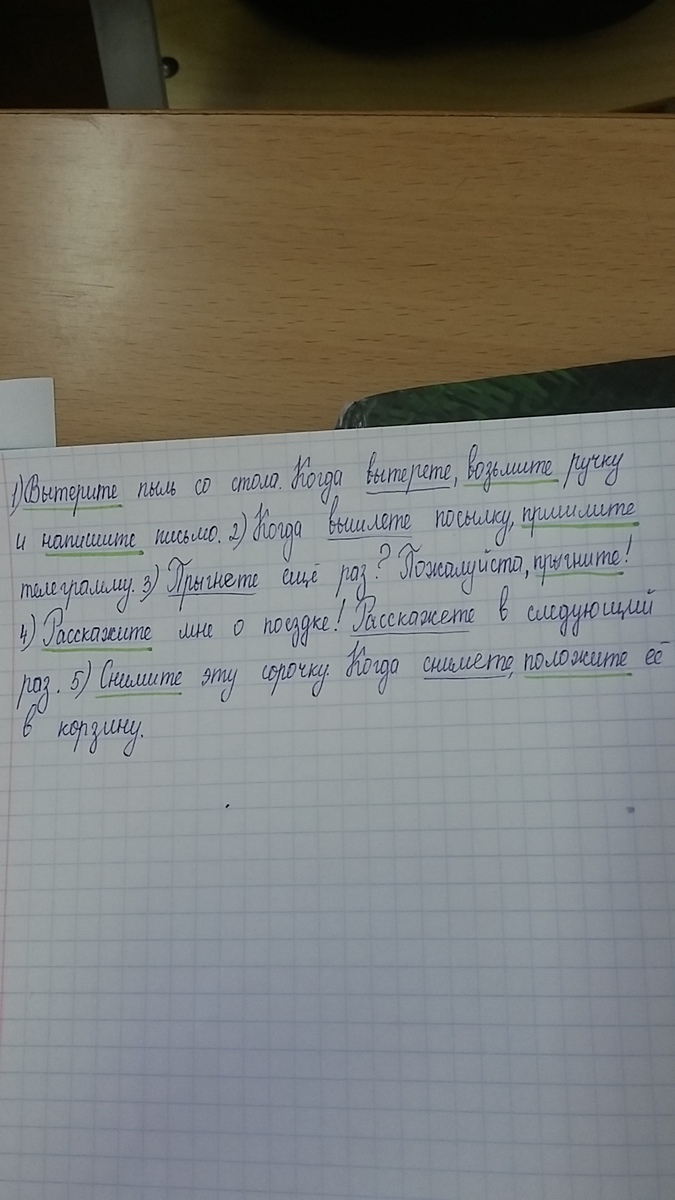 1) Вытерите пыль со стола. Когда вытерете, возьмите ручку
и напишите письмо. 2) Когда вышлете посылку, пришлите
телеграмму. 3) Прыгнете ещё раз? Пожалуйста, прыгните!
4) Расскажите мне о поездке! Расскажете в следующий
раз. 5) Снимите эту сорочку. Когда снимете, положите её
в корзину.